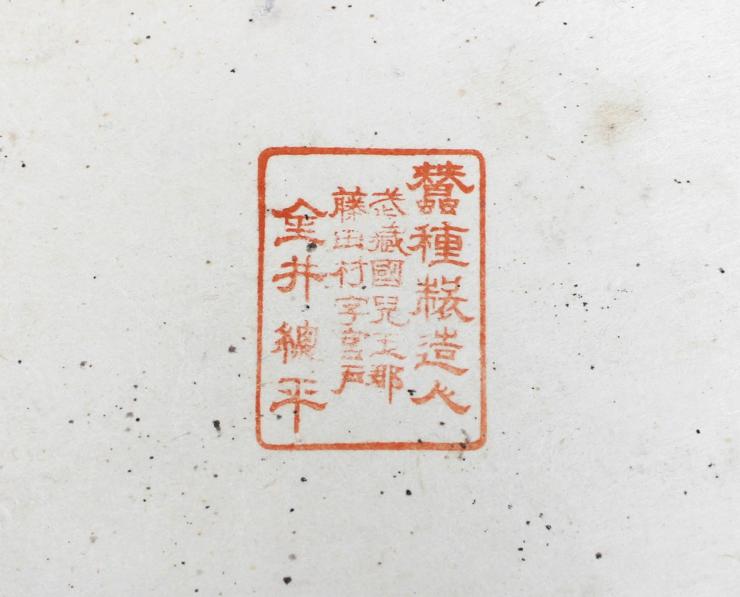 蠶種製造人
武藏國兒玉郡
藤田村字宮戸
金井總平